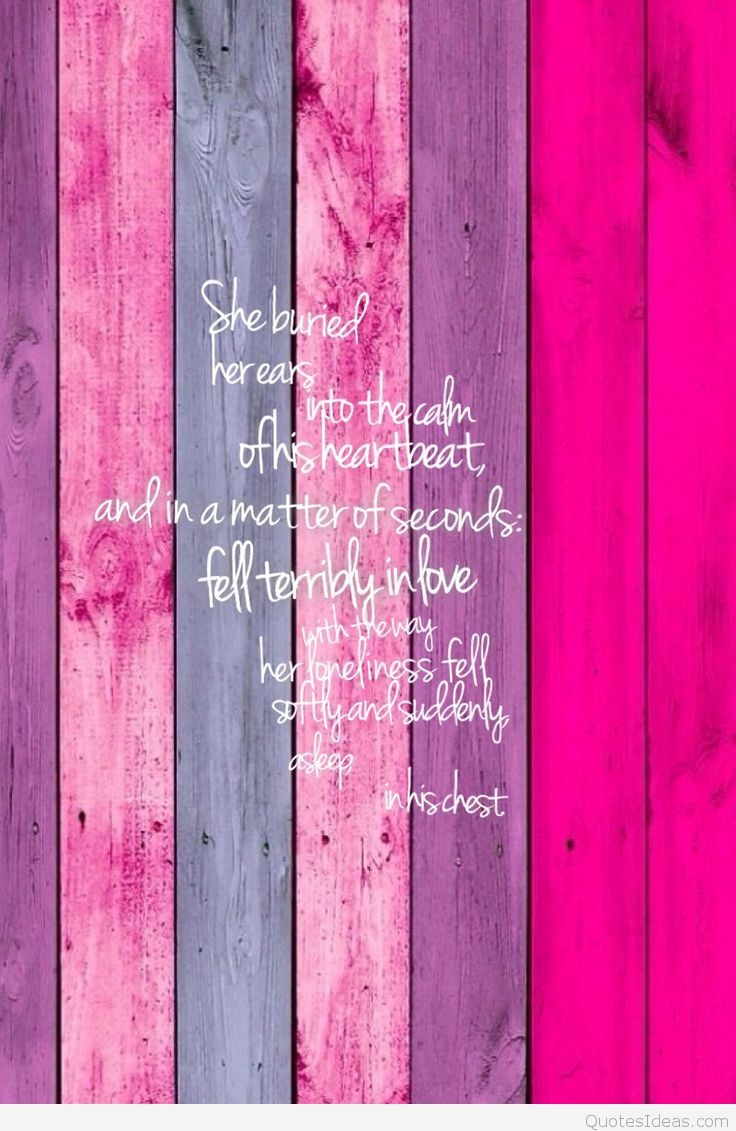 She buried
her ears
into the calm
of his heartbeat,
and in a matter of seconds:
fell terribly in love
with the way
her loneliness fell
softly and suddenly,
asleep,
in his chest.
QuotesIdeas.com